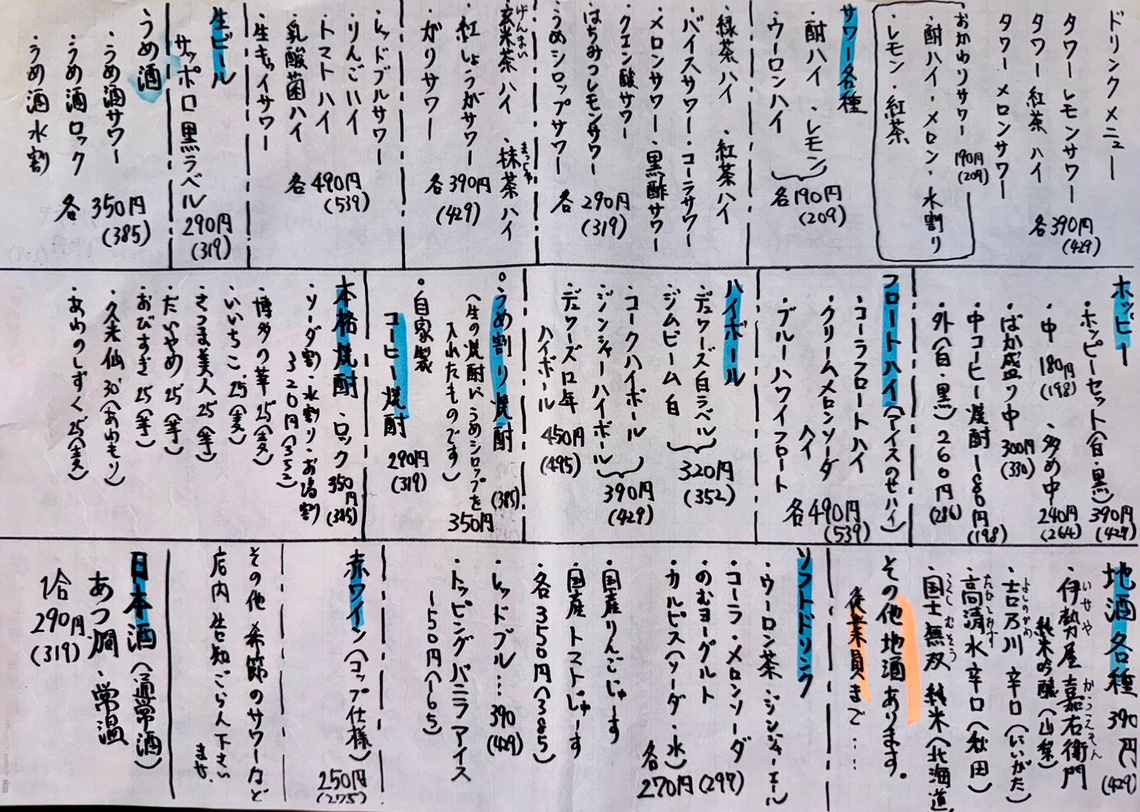 ドリンクメニュー
タワーレモンサワー
タワー紅茶ハイ
タワーメロンサワー
各390円
(429)
おかわりサワー 190円
(209)
・酎ハイ・メロン・水割り
・レモン・紅茶
サワー各種
・酎ハイ・レモン
・ウーロンハイ
各190円
(209)
・緑茶ハイ・紅茶ハイ
・バイスサワー・コーラサワー
・メロンサワー・黒酢サワー
・クエン酸サワー
・はちみつレモンサワー
・うめシロップサワー
各 290円
(319)
げんまい
・玄米茶ハイ
まっちゃ
・抹茶ハイ
・紅しょうがサワー
・がりサワー
各390円
(429)
・レッドブルサワー
・りんごハイ
・トマトハイ
・乳酸菌ハイ
・生キゥイサワー
各490円
(539)
生ビール
サッポロ黒ラベル 290円
(319)
うめ酒
・うめ酒サワー
・うめ酒ロック
・うめ酒水割
各 350円
(385)
ホッピー
・ホッピーセット(白・黒) 390円
(429)
・中 180円
(198)
・多め中 240円
(264)
・ばか盛り中 300円
(330)
・中コーヒー焼酎 180円
(198)
・外(白・黒) 260円
(286)
フロートハイ(アイスのせハイ)
・コーラフロートハイ
・クリームメロンソーダ
ハイ
・ブルーハワイフロート
各490円
(539)
ハイボール
・デュワーズ白ラベル
・ジムビーム白
320円
(352)
・コークハイボール
・ジンジャーハイボール
390円
(429)
・デュワーズ12年
ハイボール 450円
(495)
・うめ割り焼酎 350円
(385)
(生の焼酎にうめシロップを
入れたものです)
・自家製
コーヒー焼酎 290円
(319)
本格焼酎 ロック350円
(385)
・ソーダ割・水割り・お湯割
320円(352)
・博多の華 25(麦)
・いいちこ 25(麦)
・さつま美人 25(芋)
・だいやめ 25(芋)
・おびすぎ 25(芋)
・久米仙 30°(あわもり)
・あわのしずく 25(麦)
地酒各種 390円
(429)
いせや かうえもん
・伊勢屋嘉右衛門
純米吟醸(山梨)
よしのがわ
・吉乃川 辛口(にいがた)
たかしみず
・高清水 辛口(秋田)
こくしむそう
・国士無双 純米(北海道)
その他地酒あります。
従業員まで…
ソフトドリンク
・ウーロン茶・ジンジャーエール
・コーラ・メロンソーダ
・のむヨーグルト
・カルピス(ソーダ・水)
各270円(297)
・国産りんごじゅーす
・国産トマトじゅーす
・各350円(385)
・レッドブル…390
(429)
・トッピングバニラアイス
150円(165)
赤ワイン(コップ仕様)
250円
(275)
その他 季節のサワーなど
店内告知ごらん下さい
ませ
日本酒(通常酒)
あつ燗・常温
1合
290円
(319)